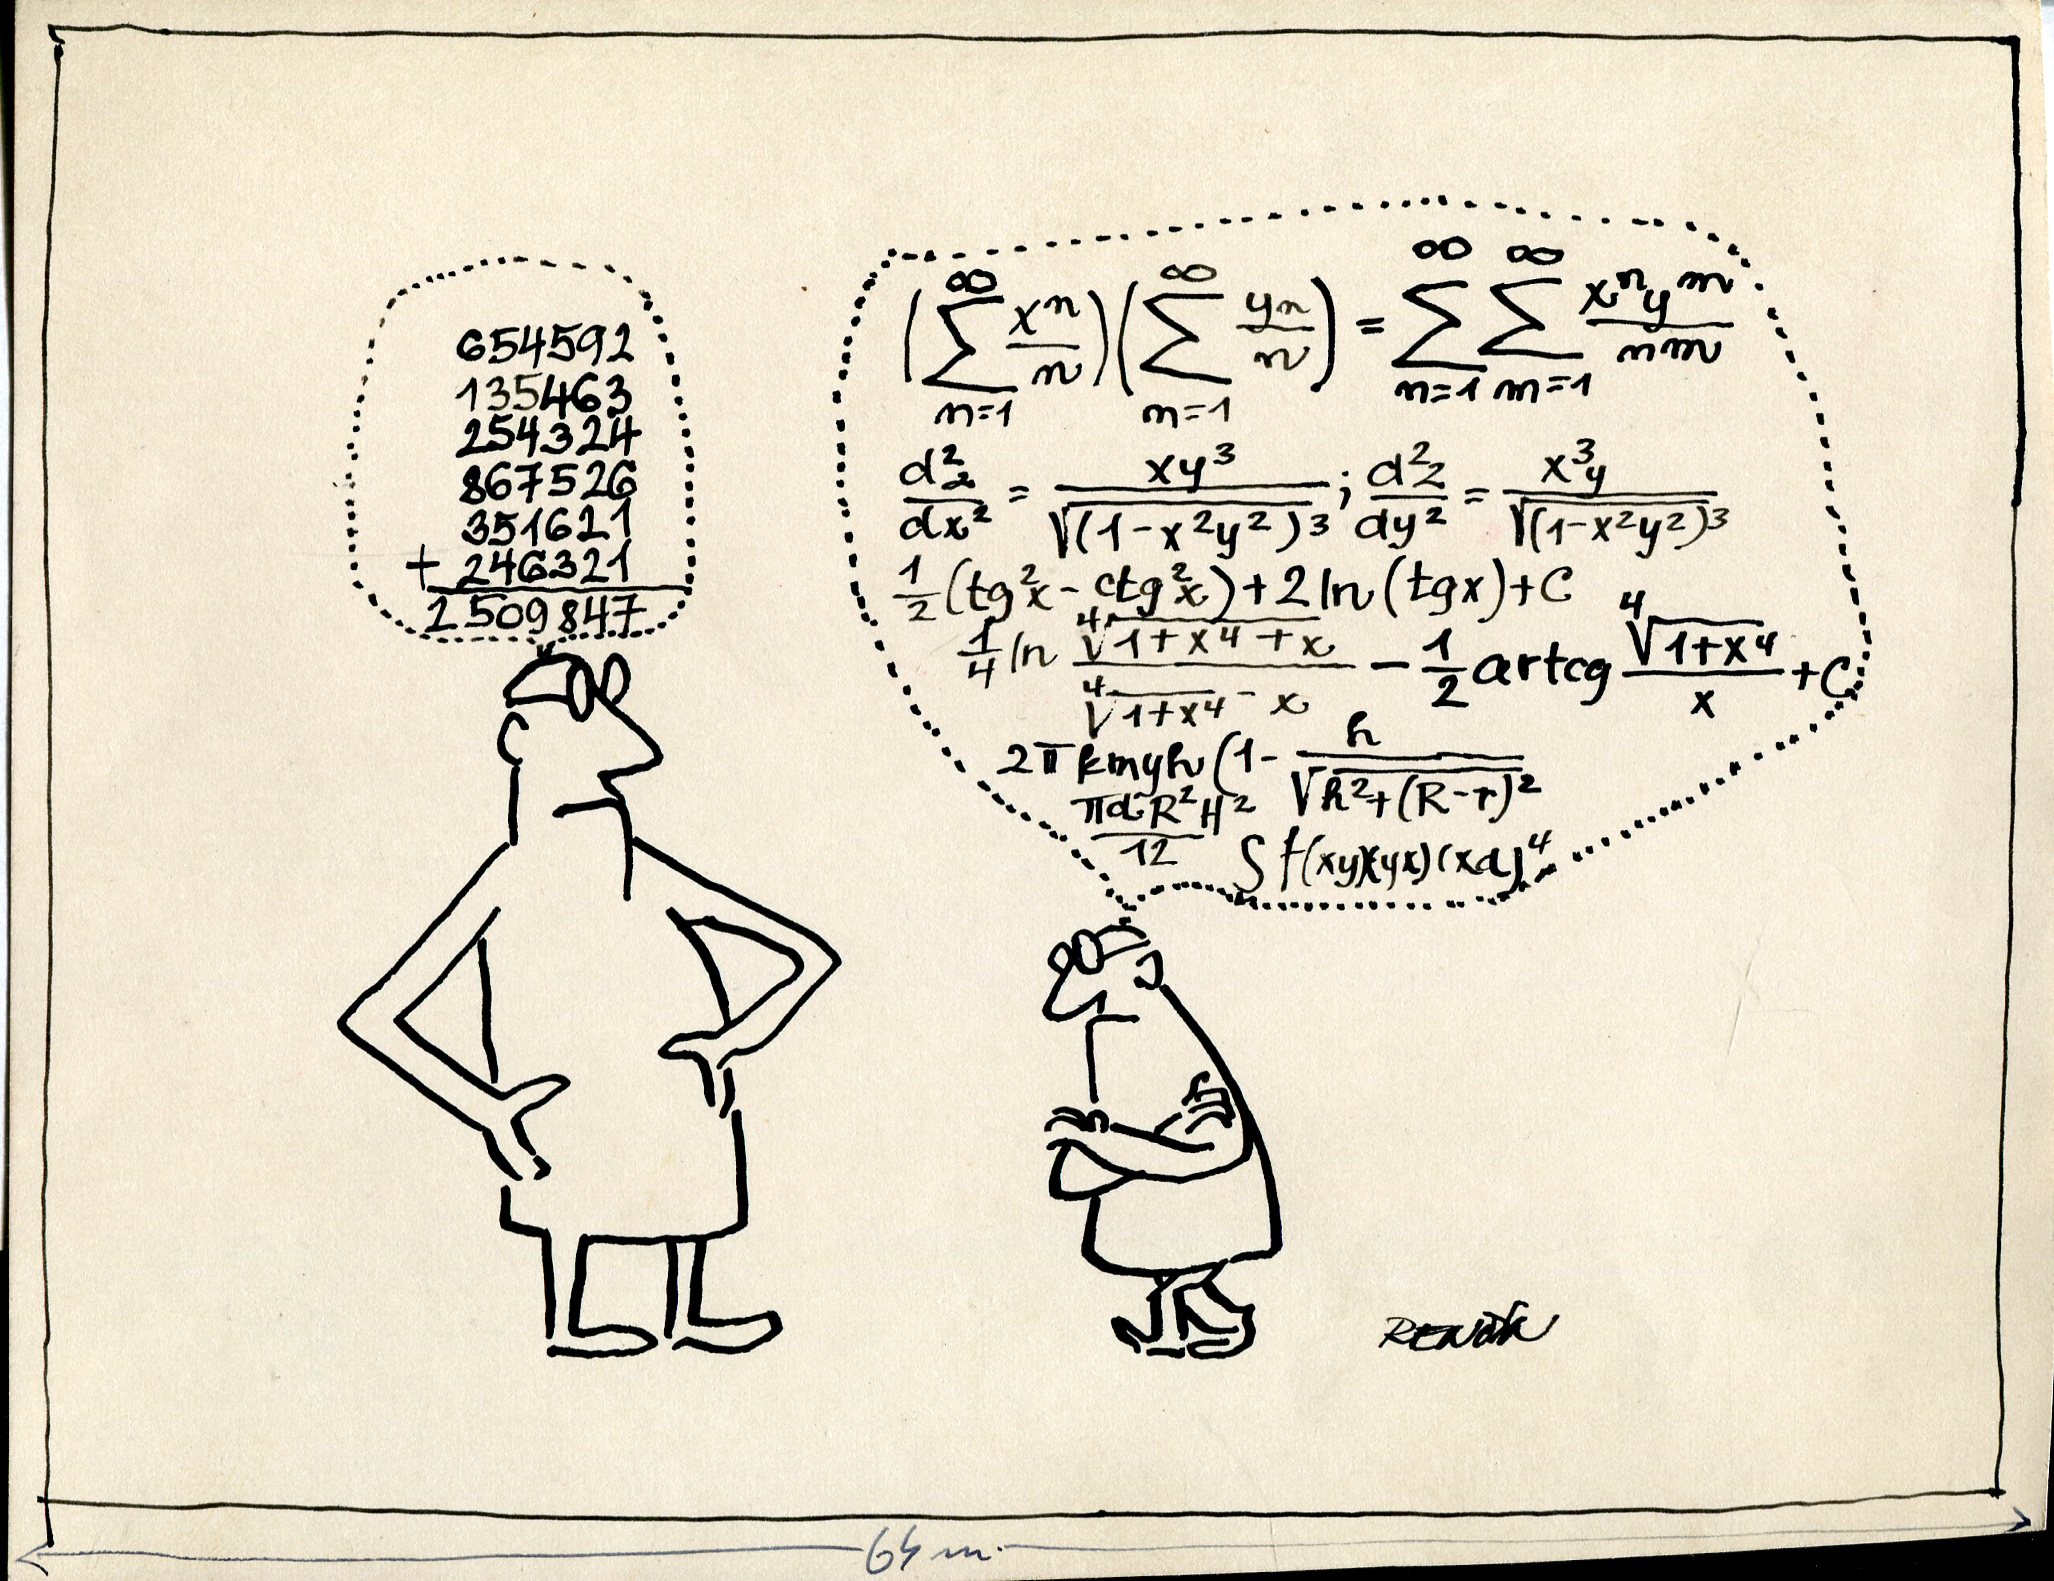 654592
135463
254324
867526
351621
+ 246321
2509847
(∑_{n=1}^{∞} xⁿ/n)(∑_{m=1}^{∞} yn/n) = ∑_{n=1}^{∞} ∑_{m=1}^{∞} xⁿyᵐ/nm
d²z/dx² = xy³/√(1-x²y²)³ ; d²z/dy² = x³y/√(1-x²y²)³
1/2 (tg²x - ctg²x) + 2 ln (tgx) + C
1/4 ln (∜1+x⁴ + x)/(∜1+x⁴ - x) - 1/2 artcg ∜1+x⁴/x + C
2π kmyh (1 - h/√h²+(R-r)²
πdR²H²/12
∫ f(xy)(yx)(xa)⁴